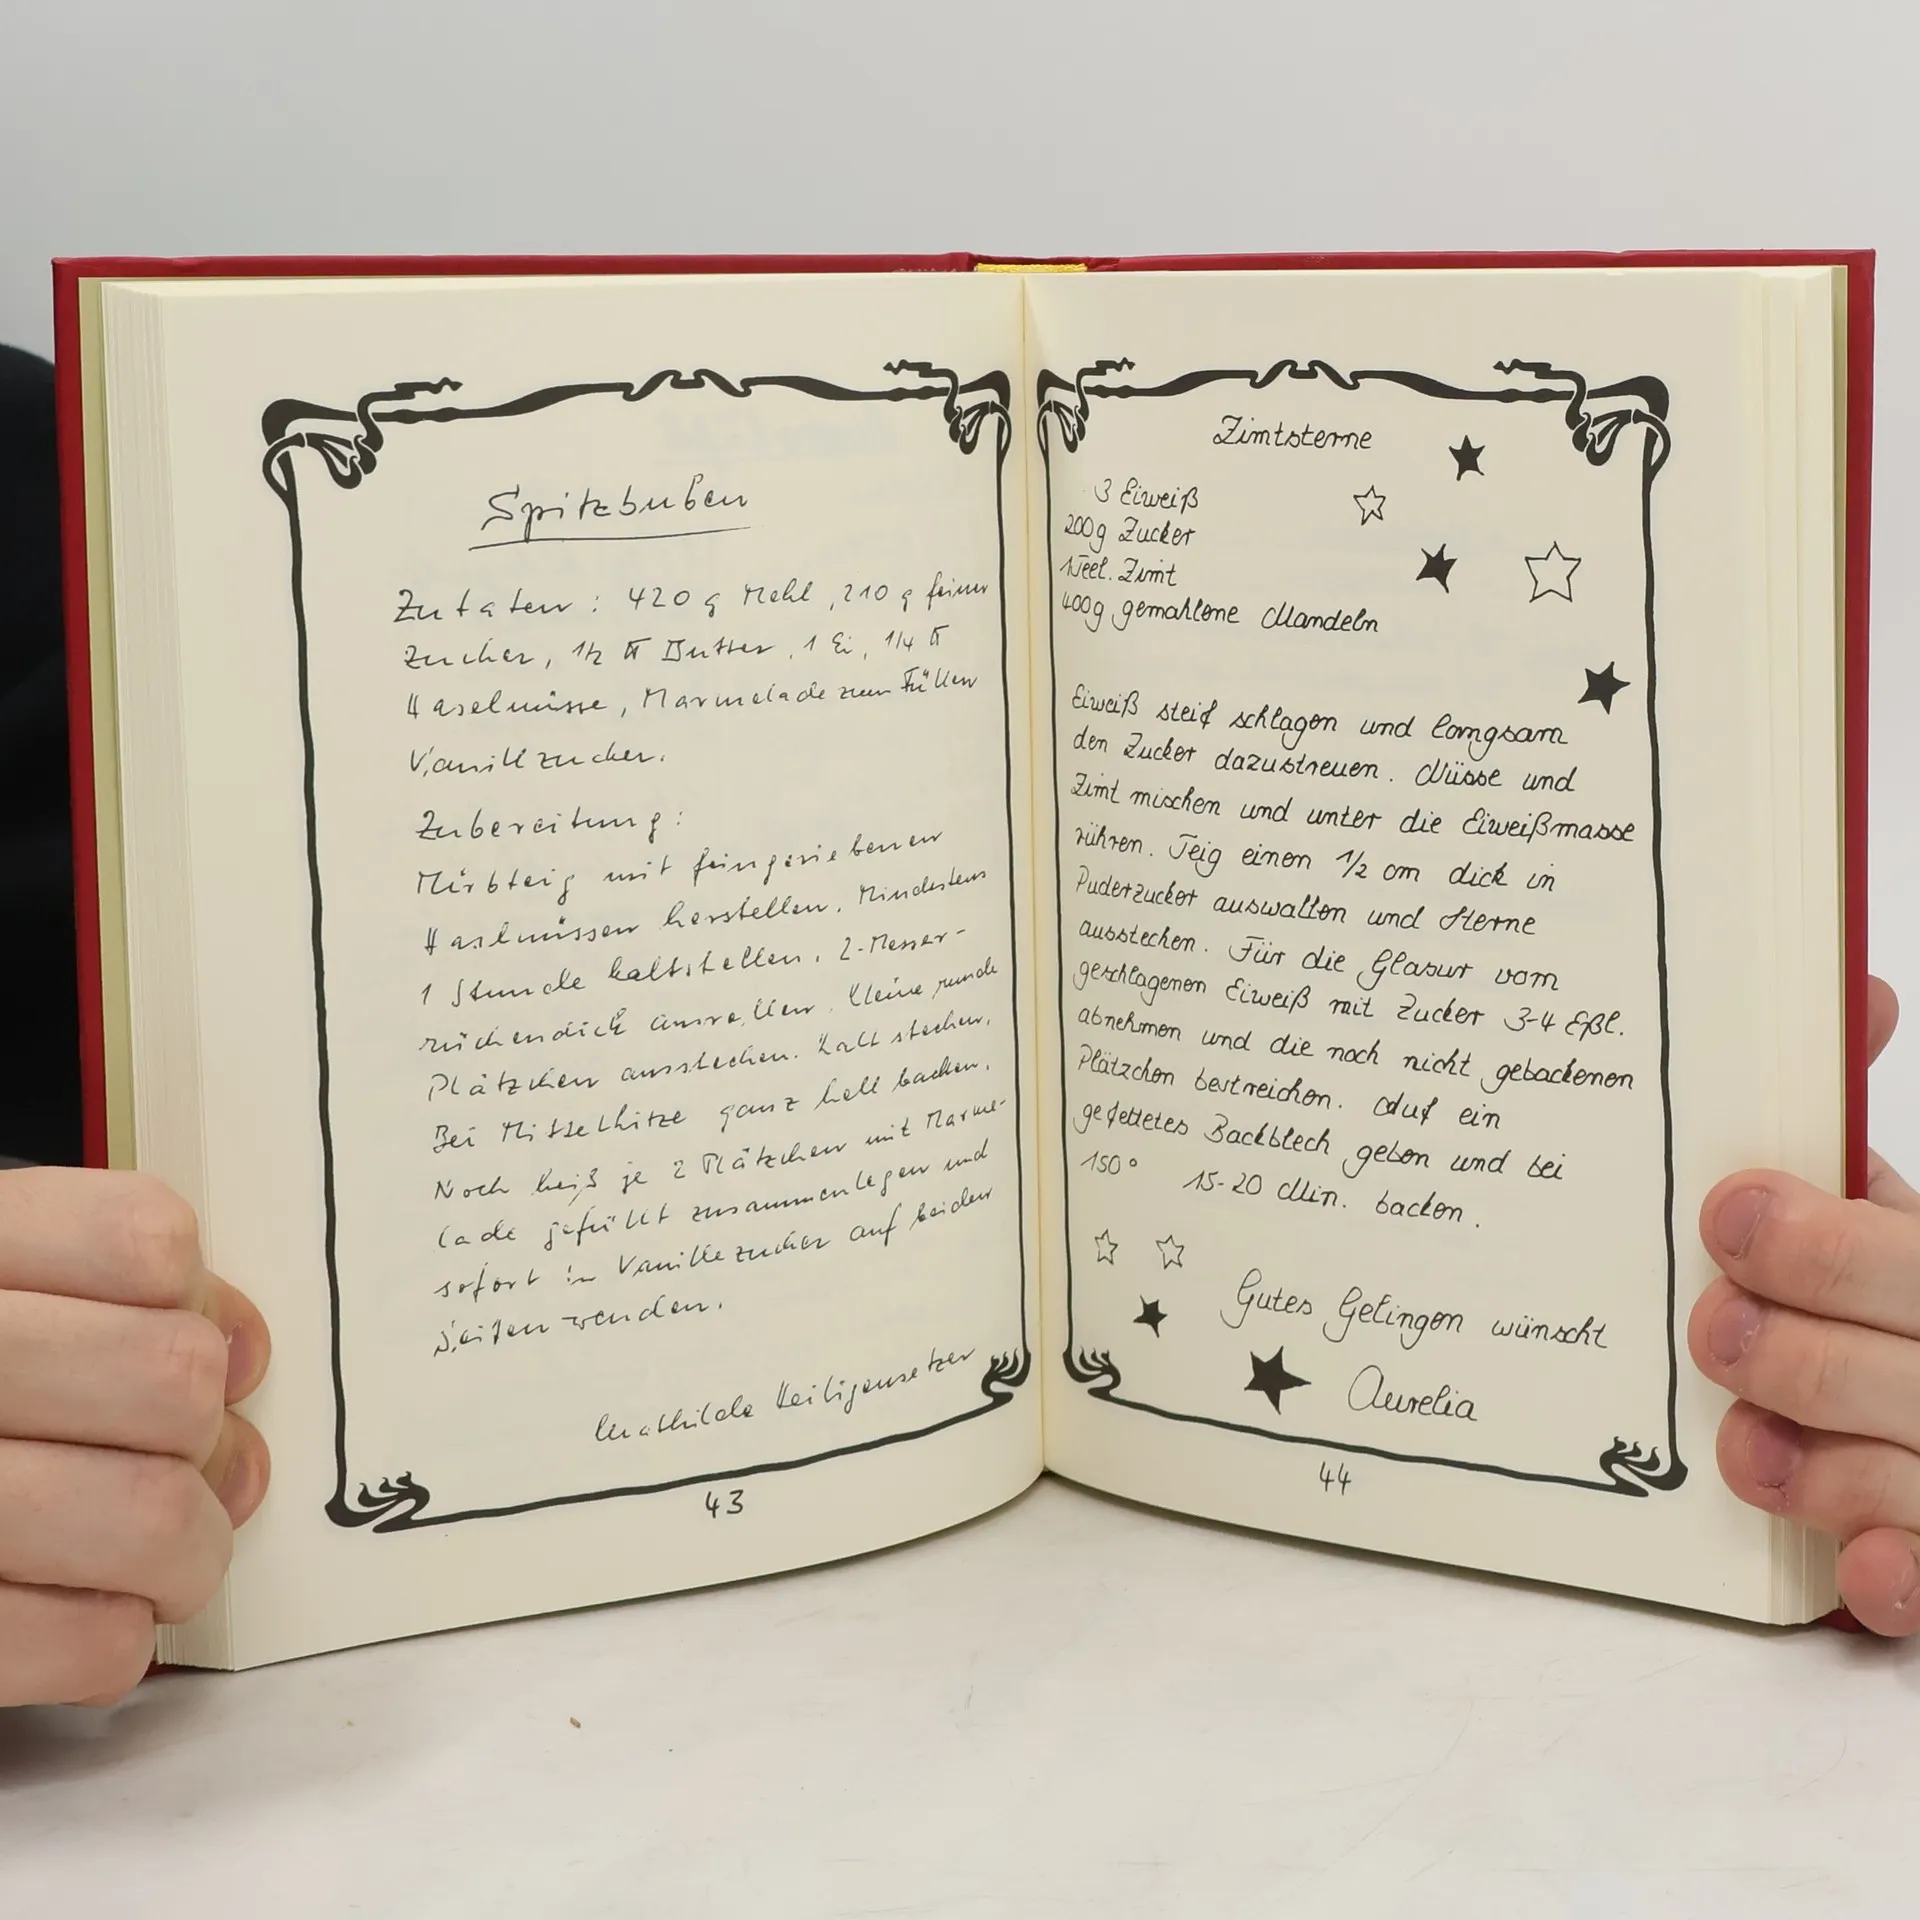 Spitzbuben
Zutaten: 420 g Mehl, 210 g feiner
Zucker, 1/2 ℔ Butter, 1 Ei, 1/4 ℔
Haselnüsse, Marmelade zum Füllen
Vanillzucker.
Zubereitung:
Mürbteig mit feingeriebenen
Haselnüssen herstellen. Mindestens
1 Stunde kaltstellen. 2-Messer-
rückendick ausrollen. Kleine runde
Plätzchen ausstechen. Kalt stechen.
Bei Mittelhitze ganz hell backen.
Noch heiß je 2 Plätzchen mit Marme-
lade gefüllt zusammenlegen und
sofort in Vanillezucker auf beiden
Seiten wenden.
Mathilde Heiligensetzer
43
Zimtsterne
3 Eiweiß
200g Zucker
1Teel. Zimt
400g gemahlene Mandeln
Eiweiß steif schlagen und langsam
den Zucker dazustreuen. Nüsse und
Zimt mischen und unter die Eiweißmasse
rühren. Teig einen 1/2 cm dick in
Puderzucker auswallen und Sterne
ausstechen. Für die Glasur vom
geschlagenen Eiweiß mit Zucker 3-4 Eßl.
abnehmen und die noch nicht gebackenen
Plätzchen bestreichen. Auf ein
gefettetes Backblech geben und bei
150° 15-20 Min. backen.
Gutes Gelingen wünscht
Aurelia
44